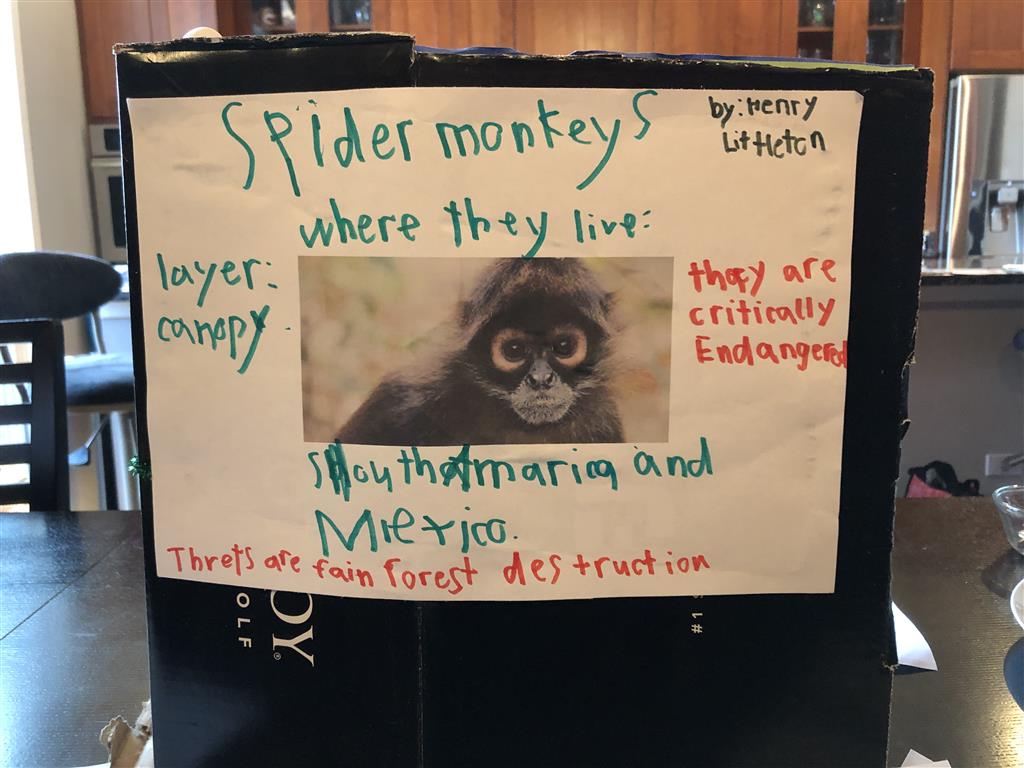 Spider monkeys
by: Henry
Littleton
where they live:
layer:
canopy.
they are
critically
Endangered
SHouthAmarica and
Miexico.
Threts are fain forest destruction
OY®
OLF
#1